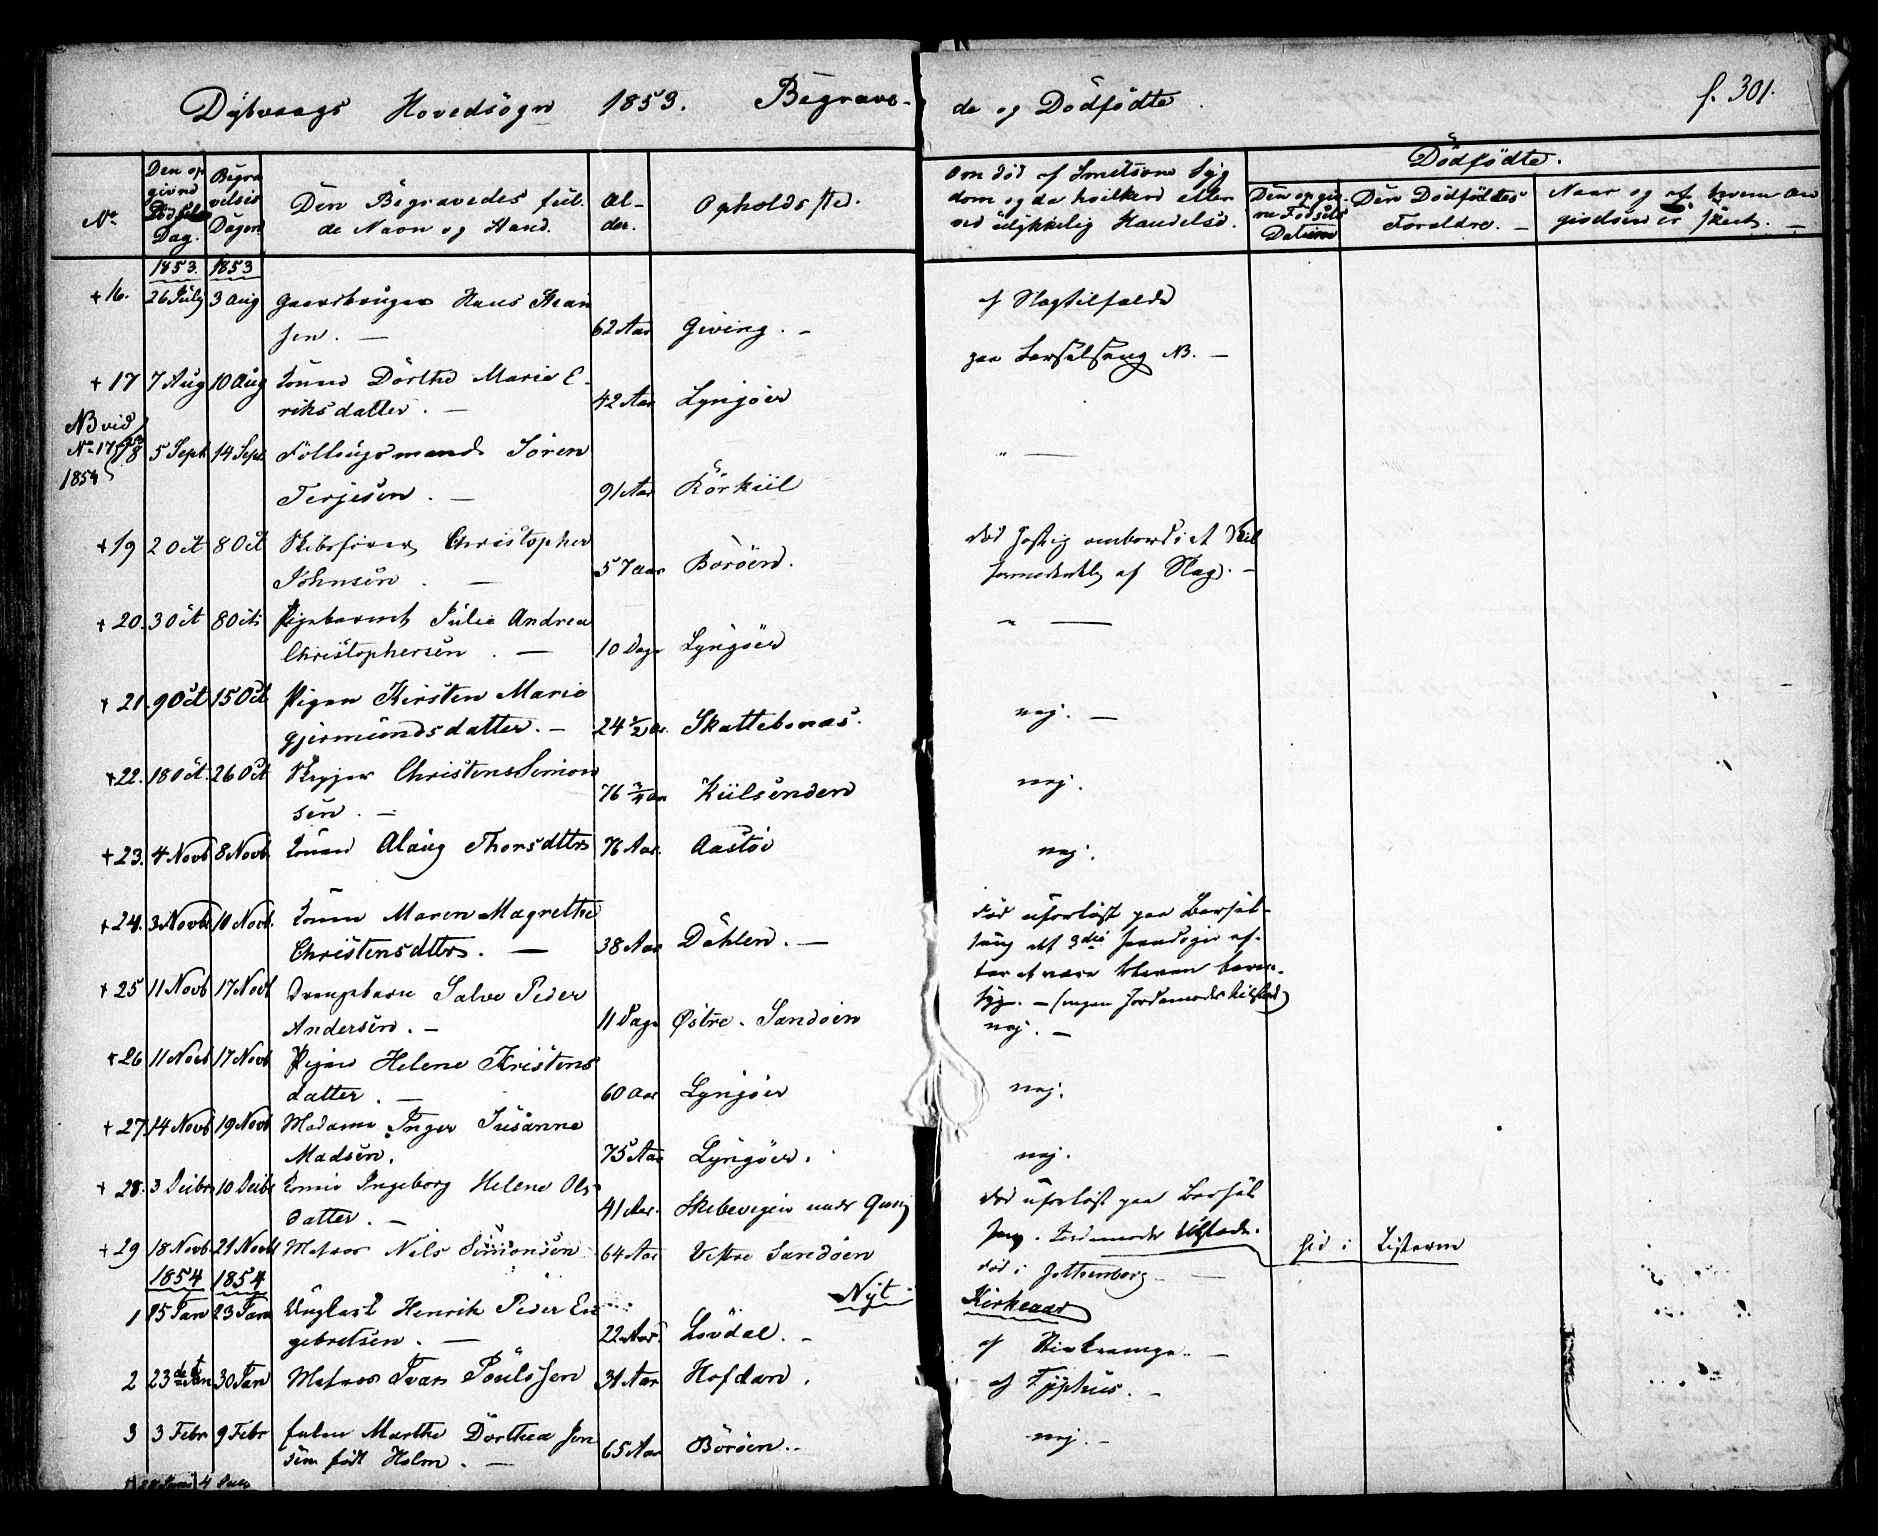 Dÿbvaags Hovedsogn 1853. Begrave-
de og Dödfödte
f. 301.
No
Den op
givne
Döds
Dag.
Begra
velses
Dagen
Den Begravedes ful-
de Navn og Stand.
Al-
der.
Opholdsted.
Om död af Smitsom Syg
dom og da hvilken eller
ved ulykkelig Hændelse.
Dödfödte.
Den opgiv-
ne Fødsels
Datum
Den Dödfödtes
Forældre. —
Naar og af hvem An
givelsen er skeet. —
1853. 1853
+ 16. 26 July 3 Aug Gaardbruger Hans
sen. — 62 Aar Giving. — af Slagtilfælde
+ 17 7 Aug 10 Aug Konen Dorthe Marie E-
riksdatter. — 42 Aar Lyngöer paa Barselseng NB. —
NB vid
No 17
1854
18 5 Sept 14 Sept Föllougsmand Sören
Terjesen. — 91 Aar Börkiil " —
+ 19 2 Oct 8 Oct Skibsfører Christopher
Johnsen. — 57 Aar Boröen. död hastig ombord i et Skib
formodentlig af Slag. —
+ 20. 3 Oct 8 Oct Pigebarnet Julie Andrea
Christophersen. — 10 Dage Lyngöer " —
+ 21. 9 Oct 15 Oct Pigen Kirsten Marie
Gjermundsdatter. — 24 ½ Skattebonæs. nej. —
+ 22. 18 Oct. 26 Oct Skipper Christen Simon
sen. — 76 ¾ Aar Kiilsunden nej.
+ 23. 4 Novb 8 Novb. Konen Alaug Thorsdttr 76 Aar. Aastöe nej.
+ 24. 3 Novb 10 Novb. Konen Maren Magrethe
Christensdttr. — 38 Aar Dahlen. — död uforløst paa Barsel-
seng det 3die
ter at være bleven barn-
syg. — (ingen Jordemoder tilstede)
+ 25 11 Novb 17 Novb Drengebarn Salve Peder
Andersen. — 11 Dage Østre Sandöen nej. —
+ 26 11 Novb 17 Novb Pigen Helene Kristens
datter. — 60 Aar Lyngöer nej.
+ 27. 14 Novb 19 Novb Madame Inger Susanne
Madsen. 75 Aar Lyngöer. nej.
+ 28. 3 Decbr 10 Decbr Konen Ingeborg Helene Ols
datter. — 41 Aar. död uforløst paa Barsel
seng. Jordemoder tilstede.
+ 29 18 Novb 21 Novb Matros Nils Simonsen 64 Aar Vestre Sandöen död i Gothenborg —
1854 1854
Nyt Kirkeaar
1 15 Jan 23 Jan Ungkarl Henrik Peder En
gebretsen. — 22 Aar Lövdal. — af
2 23de Jan 30 Jan Matros Ivar Poulssen 31 Aar Hofdan. af Typhus. —
3 3 Febr 9 Febr Marthe Dorthea Jen
sen født Holm. — 65 Aar Boröen. — nej. —